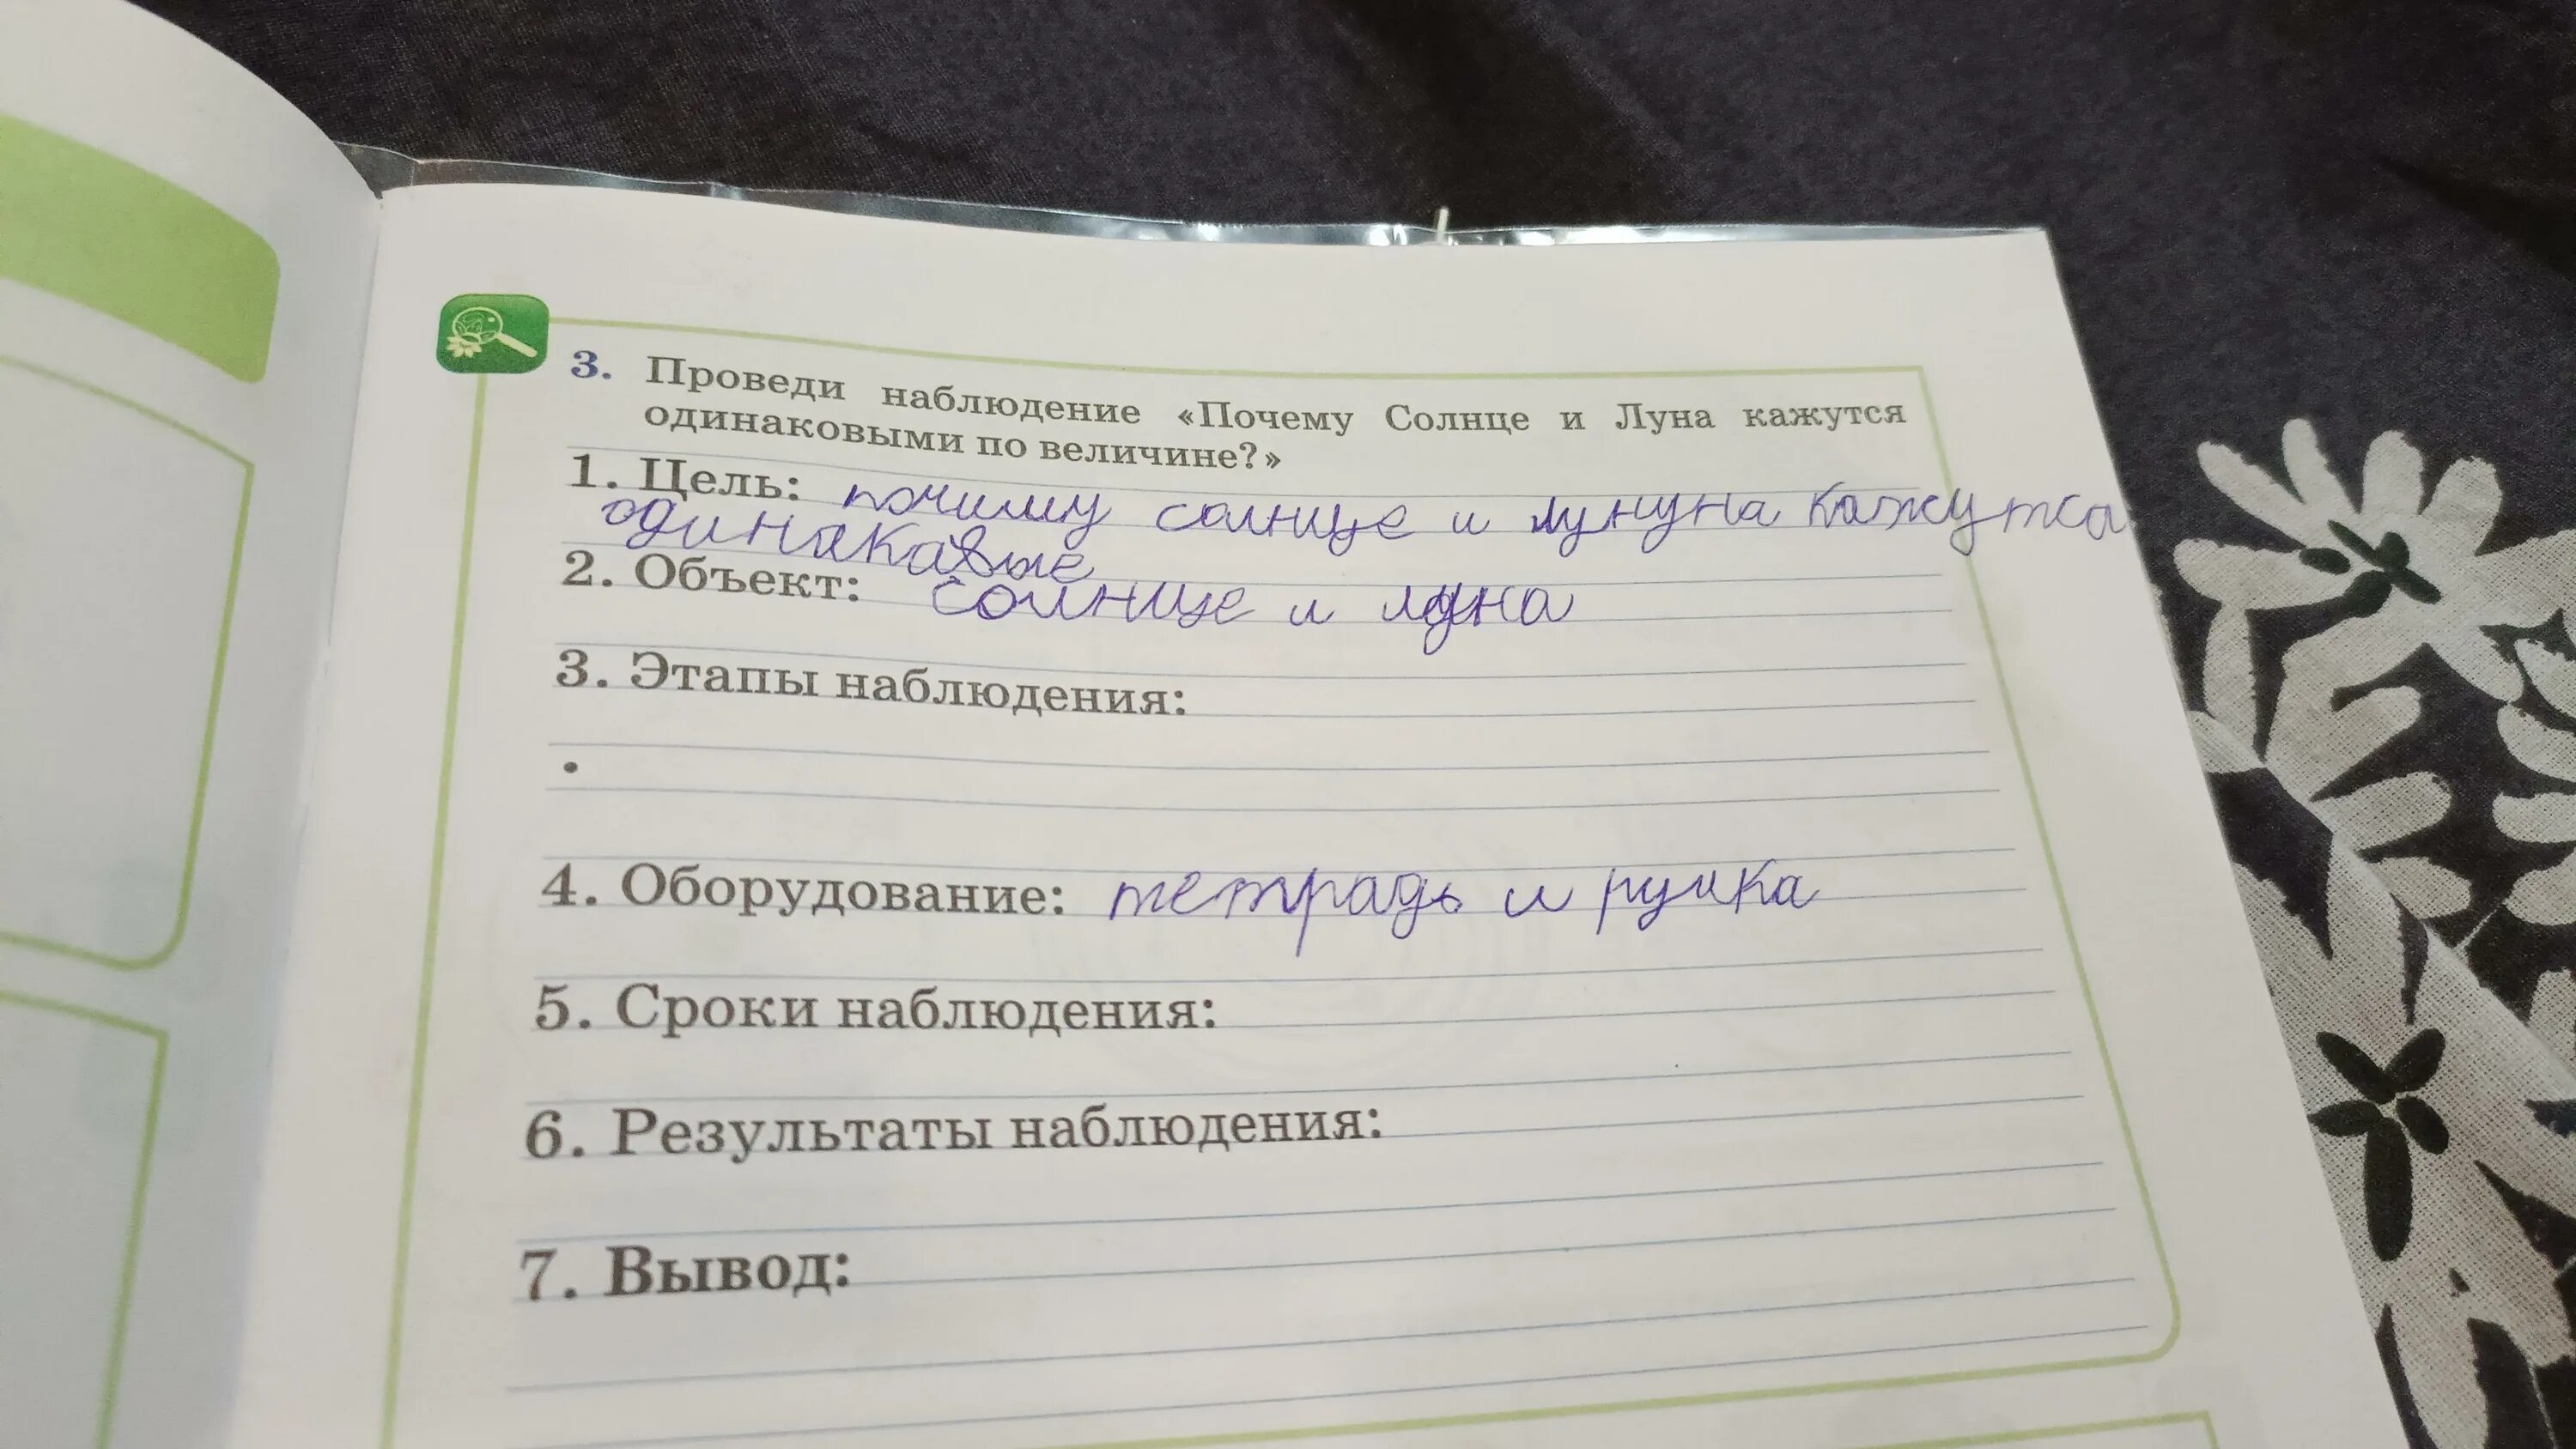 3. Проведи наблюдение «Почему Солнце и Луна кажутся
одинаковыми по величине?»
1. Цель: почиму солнце и лунуна кажутса
одинакавые
2. Объект: солнце и луна
3. Этапы наблюдения:
•
4. Оборудование: тетрадь и ручка
5. Сроки наблюдения:
6. Результаты наблюдения:
7. Вывод: